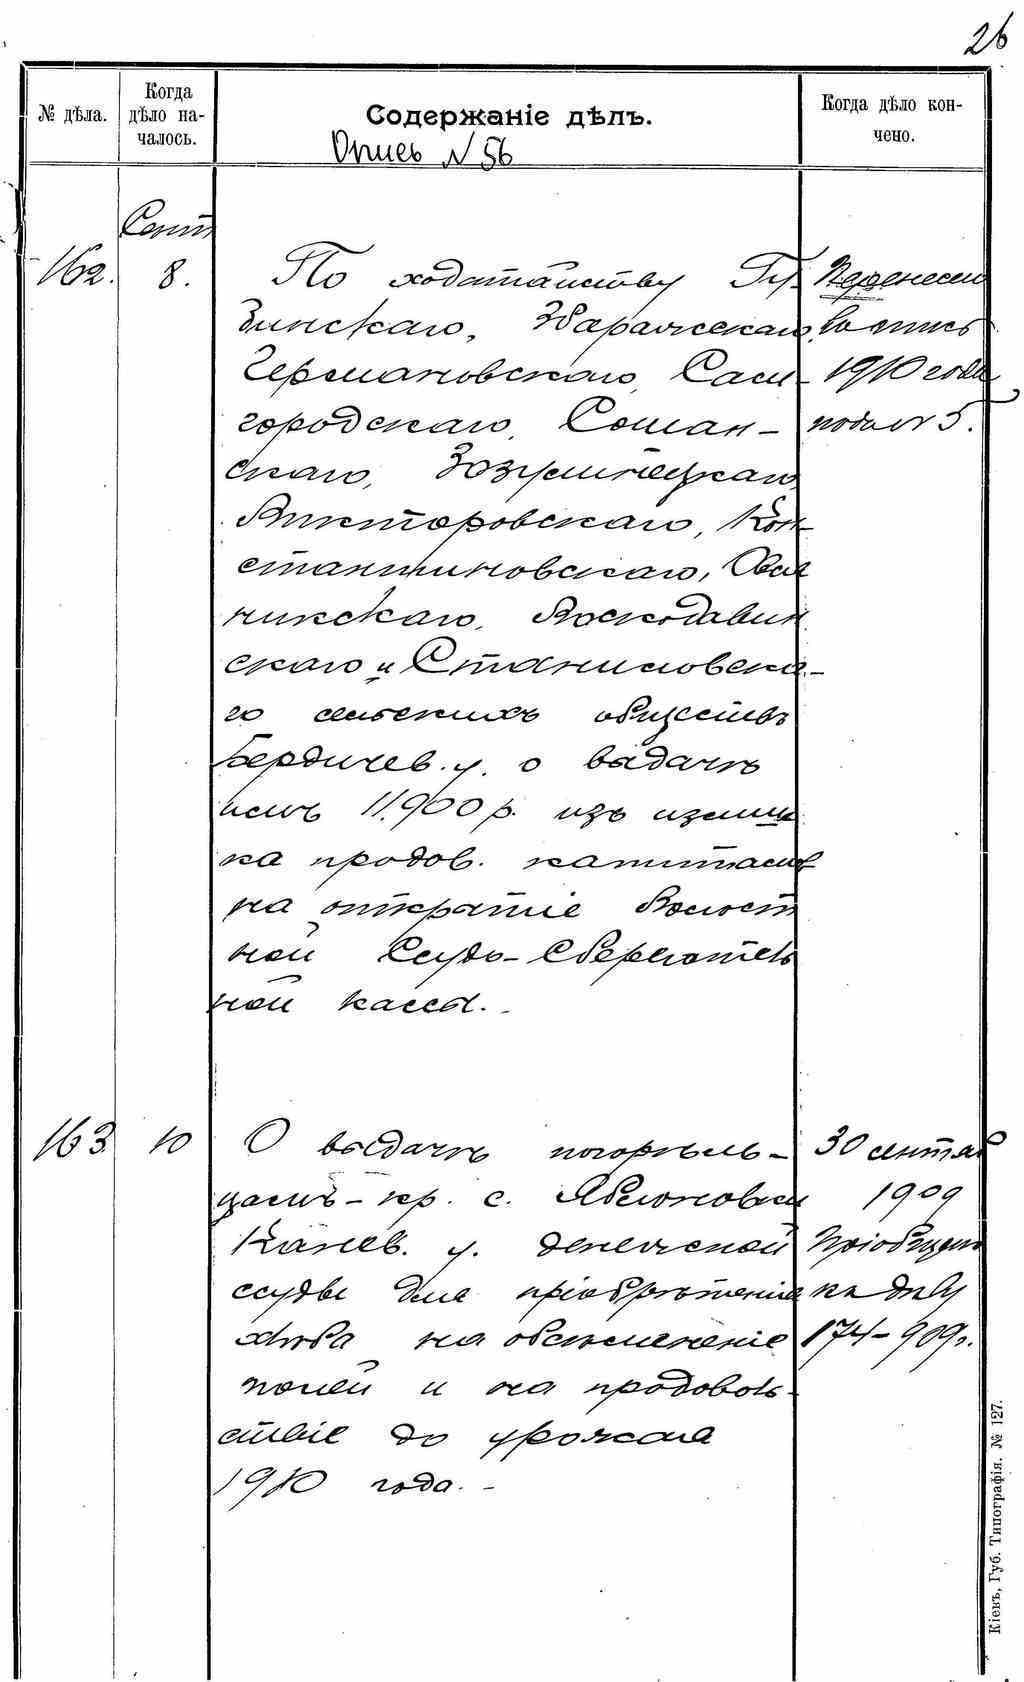 26
№ дѣла.
Когда
дѣло на-
чалось.
Содержаніе дѣлъ.
Опись N 56
Когда дѣло кон-
чено.
Сент
162.
8.
По ходатайству Гу-
бинскаго, Збаражскаго,
Германовскаго, Сам-
городскаго, Сошан-
скаго, Зозулинецкаго,
Викторовскаго, Кон-
стантиновскаго, Овсян
никскаго, Воскодавин
скаго и Станиловска-
го сельскихъ обществъ
Бердичев. у. о выдачѣ
имъ 11.900 р. изъ излиш
ка продов. капитала
на открытіе Волост
ной Ссудо-Сберегатель
ной кассы.
Перенесено
въ опись
1910 года
подъ N 5.
163
10
О выдачѣ погорѣль-
цамъ - кр. с. Яблоновки
Канев. у. денежной
ссуды для пріобрѣтенія
хлѣба на обсѣмененіе
полей и на продоволь-
ствіе до урожая
1910 года. -
30 сентяб
1909
Пріобщено
къ дѣлу
174-909г.
Кіевъ, Губ. Типографія. № 127.